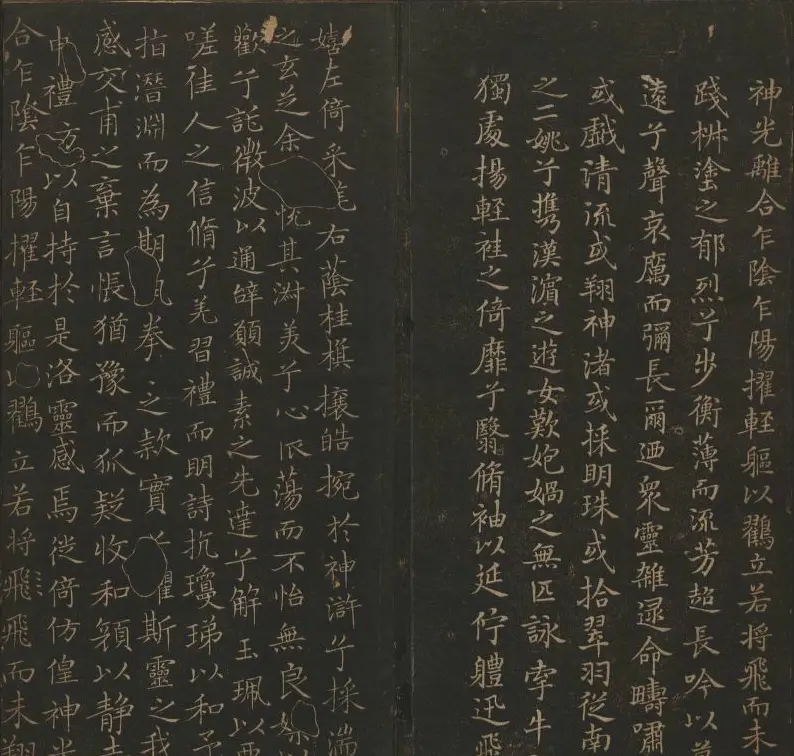 神光離合乍陰乍陽擢輕軀以鸖立若將飛而未
踐椒塗之郁烈兮步衡薄而流芳超長吟以
遠兮聲哀厲而彌長爾迺衆靈雜遝命疇嘯
或戲清流或翔神渚或採明珠或拾翠羽從南
之二姚兮攜漢濱之遊女歎匏媧之無匹詠牽牛
獨處揚輕袿之倚靡兮翳脩袖以延佇軆迅飛
嬉左倚采旄右蔭桂旗攘皓捥於神滸兮採湍
之玄芝余悅其淑美兮心振蕩而不怡無良媒以
歡兮託微波以通辭願誠素之先達兮解玉珮以要
嗟佳人之信脩兮羌習禮而明詩抗瓊珶以和予
指潛淵而為期執拳〻之款實兮懼斯靈之我
感交甫之棄言悵猶豫而狐疑收和顏以静志
申禮防以自持於是洛靈感焉徙倚仿偟神光
合乍陰乍陽擢輕軀以鸖立若將飛飛而未翔